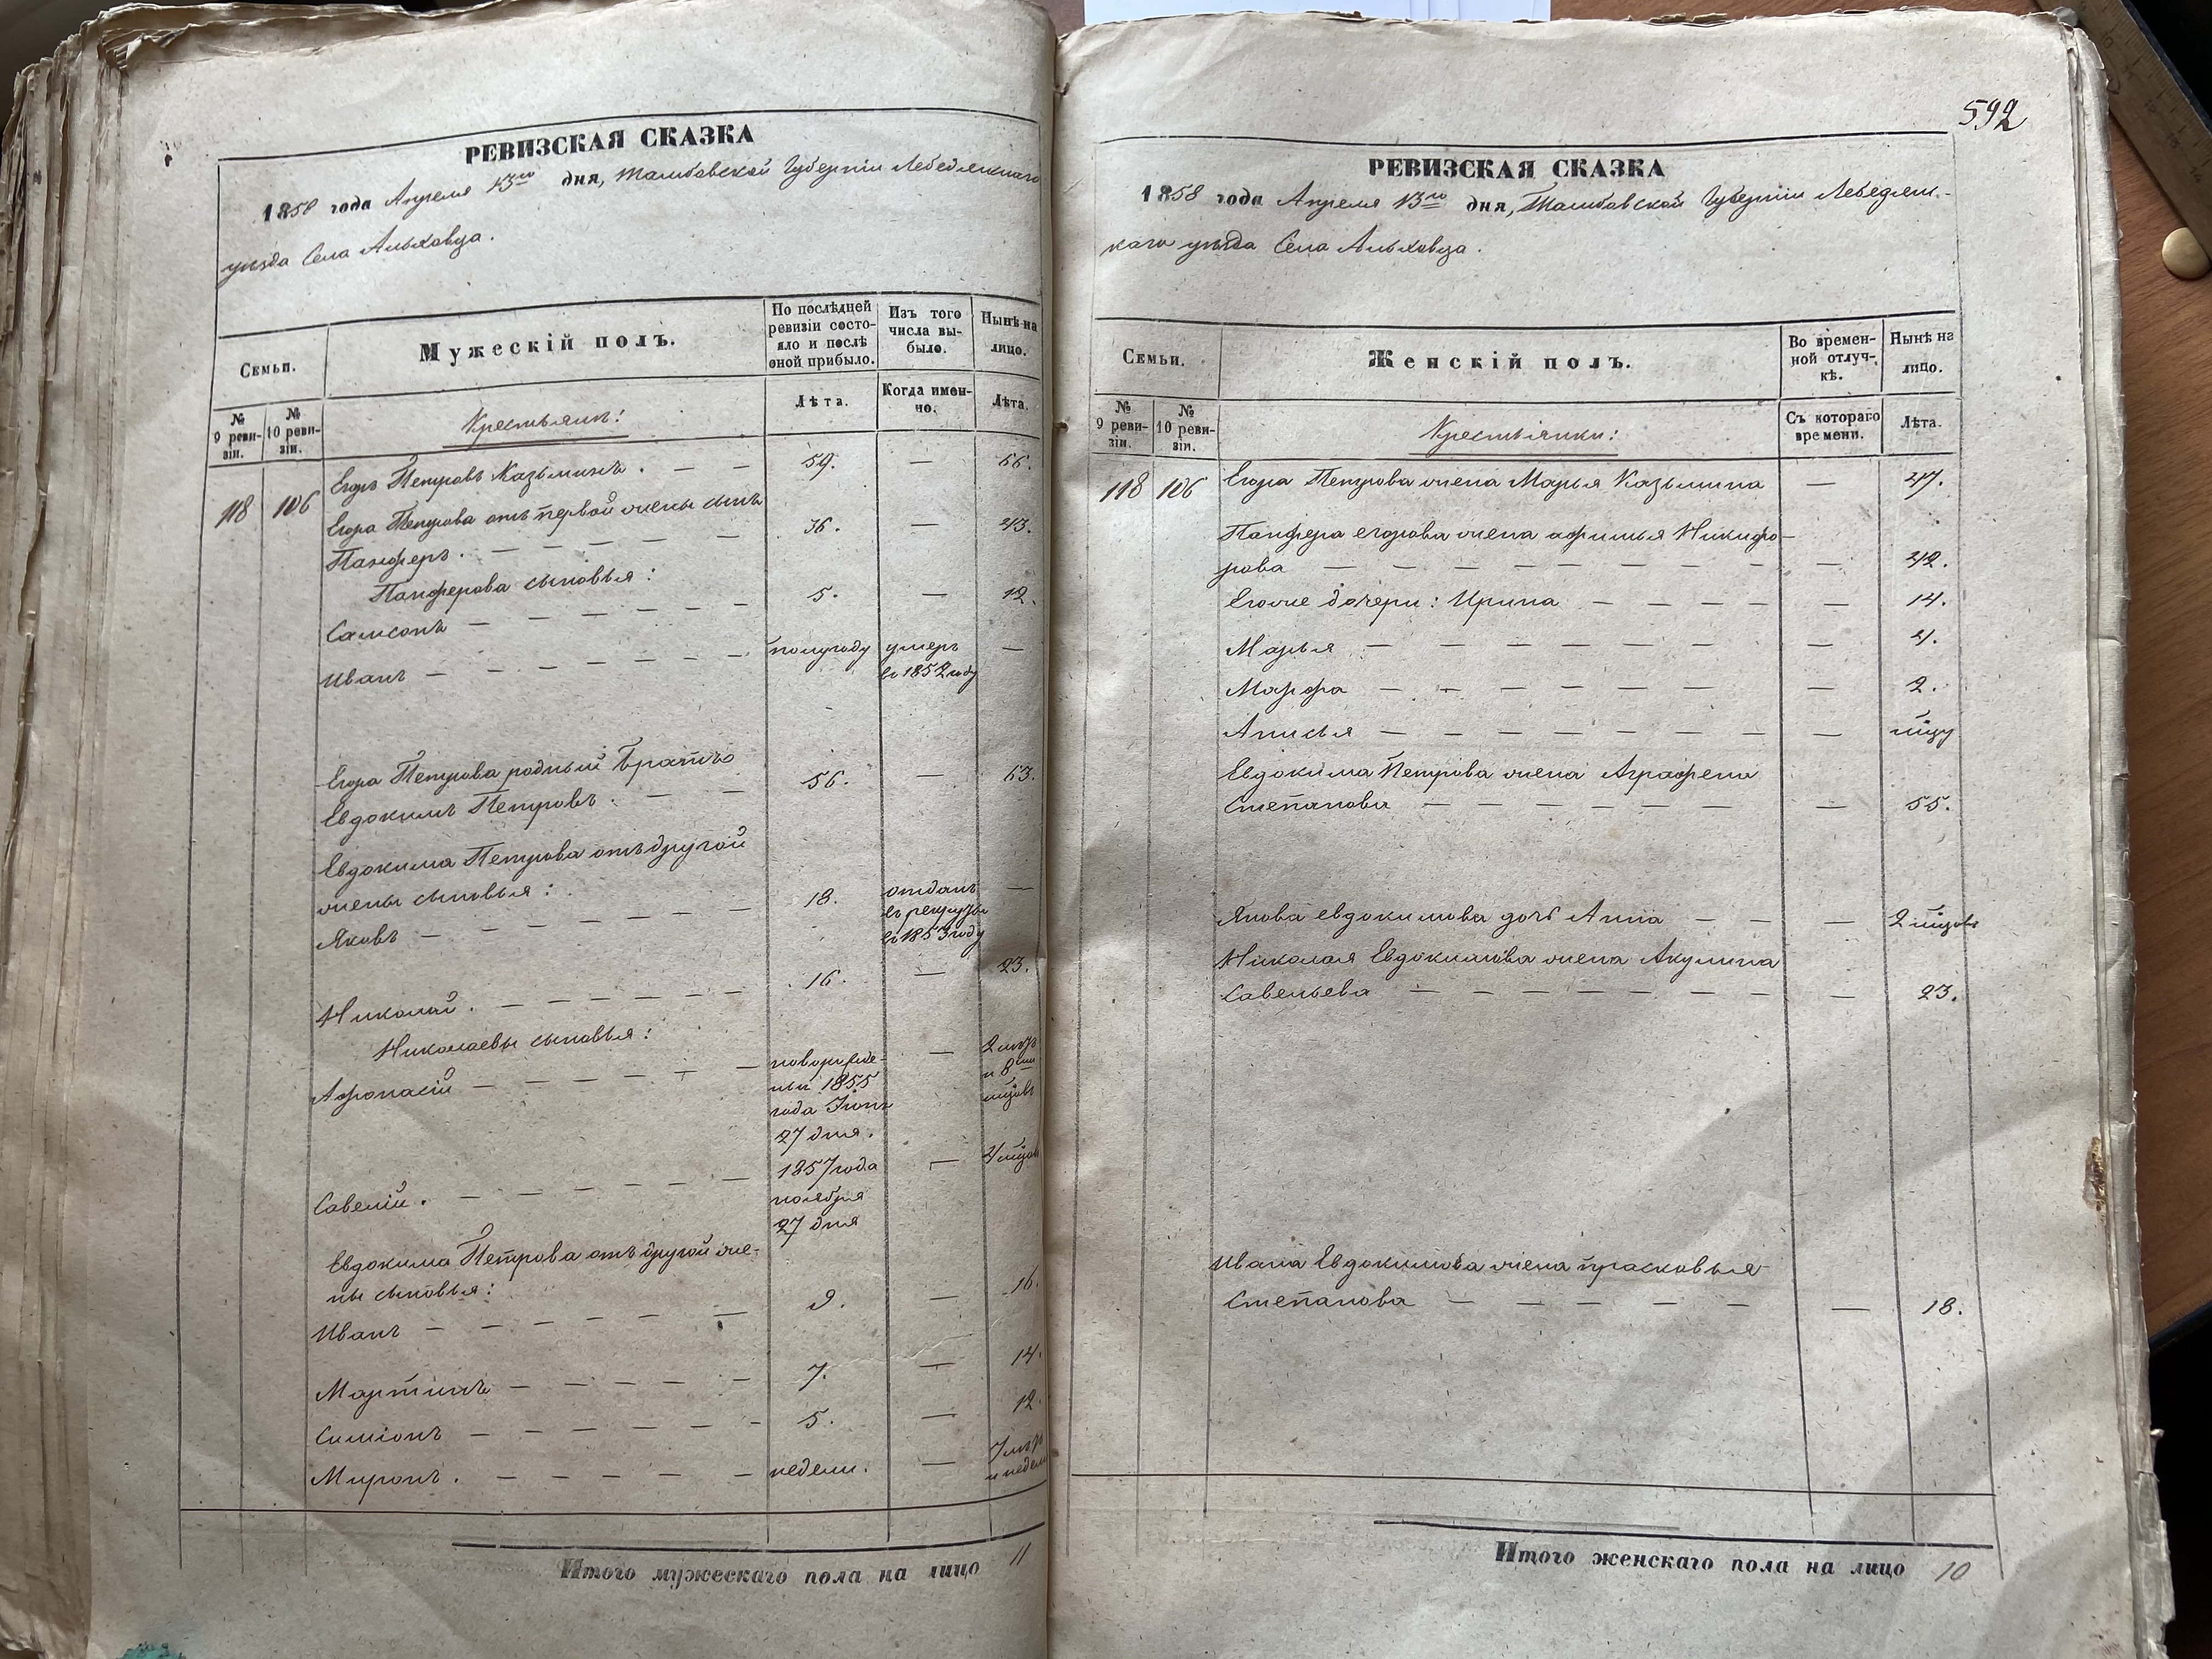 РЕВИЗСКАЯ СКАЗКА
1858 года Апреля 13го дня, Тамбовской Губернiи Лебедянскаго
уѣзда Села Альховца.
Семьи.
Мужескiй полъ.
По послѣдней ревизiи состояло и послѣ оной прибыло.
Изъ того числа выбыло.
Нынѣ на лицо.
№ 9 ревизiи.
№ 10 ревизiи.
Крестьяне:
Лѣта.
Когда именно.
Лѣта.
118 106 Егоръ Петровъ Казьминъ . — — 59. — 66.
Егора Петрова отъ первой жены сынъ
Панферъ . — — — — — 36. — 43.
Панферова сыновья:
Самсонъ — — — — — 5. — 12.
Иванъ — — — — — полугоду умеръ —
въ 1852 году
Егора Петрова родный братъ
Евдокимъ Петровъ . — — 56. — 63.
Евдокима Петрова отъ другой
жены сыновья:
Яковъ — — — — — 18. отданъ —
въ рекруты
въ 1853 году
Николай . — — — — — 16. — 23.
Николаевы сыновья:
Афонасiй — — — — — новорожде- — 2 лѣтъ
ный 1855 и 8ми
года Iюня мцовъ
27 дня.
Савелiй . — — — — — 1857 года — 4 мцовъ
ноября
27 дня
Евдокима Петрова отъ другой же-
ны сыновья:
Иванъ — — — — — 9. — 16.
Мартинъ — — — — — 7. — 14.
Симiонъ — — — — — 5. — 12.
Миронъ . — — — — — недели. — 7 лѣтъ
и недели
Итого мужескаго пола на лицо 11
592
РЕВИЗСКАЯ СКАЗКА
1858 года Апреля 13го дня, Тамбовской Губернiи Лебедян-
скаго уѣзда Села Альховца.
Семьи.
Женскiй полъ.
Во временной отлучкѣ.
Нынѣ на лицо.
№ 9 ревизiи.
№ 10 ревизiи.
Крестьянки:
Съ котораго времени.
Лѣта.
118 106 Егора Петрова жена Марья Казьмина — 47.
Панфера егорова жена афимья Никифо-
рова — — — — — — — — 42.
Егоже дочери: Ирина — — — — — 14.
Марья — — — — — — — 4.
Марфа — — — — — — — 2.
Анисья — — — — — — — мцу
Евдокима Петрова жена Аграфена
Степанова — — — — — — — 55.
Якова евдокимова дочь Анна — — — 2 мцовъ
Николая Евдокимова жена Акулина
Савельева — — — — — — — 23.
Ивана Евдокимова жена прасковья
Степанова — — — — — — — 18.
Итого женскаго пола на лицо 10